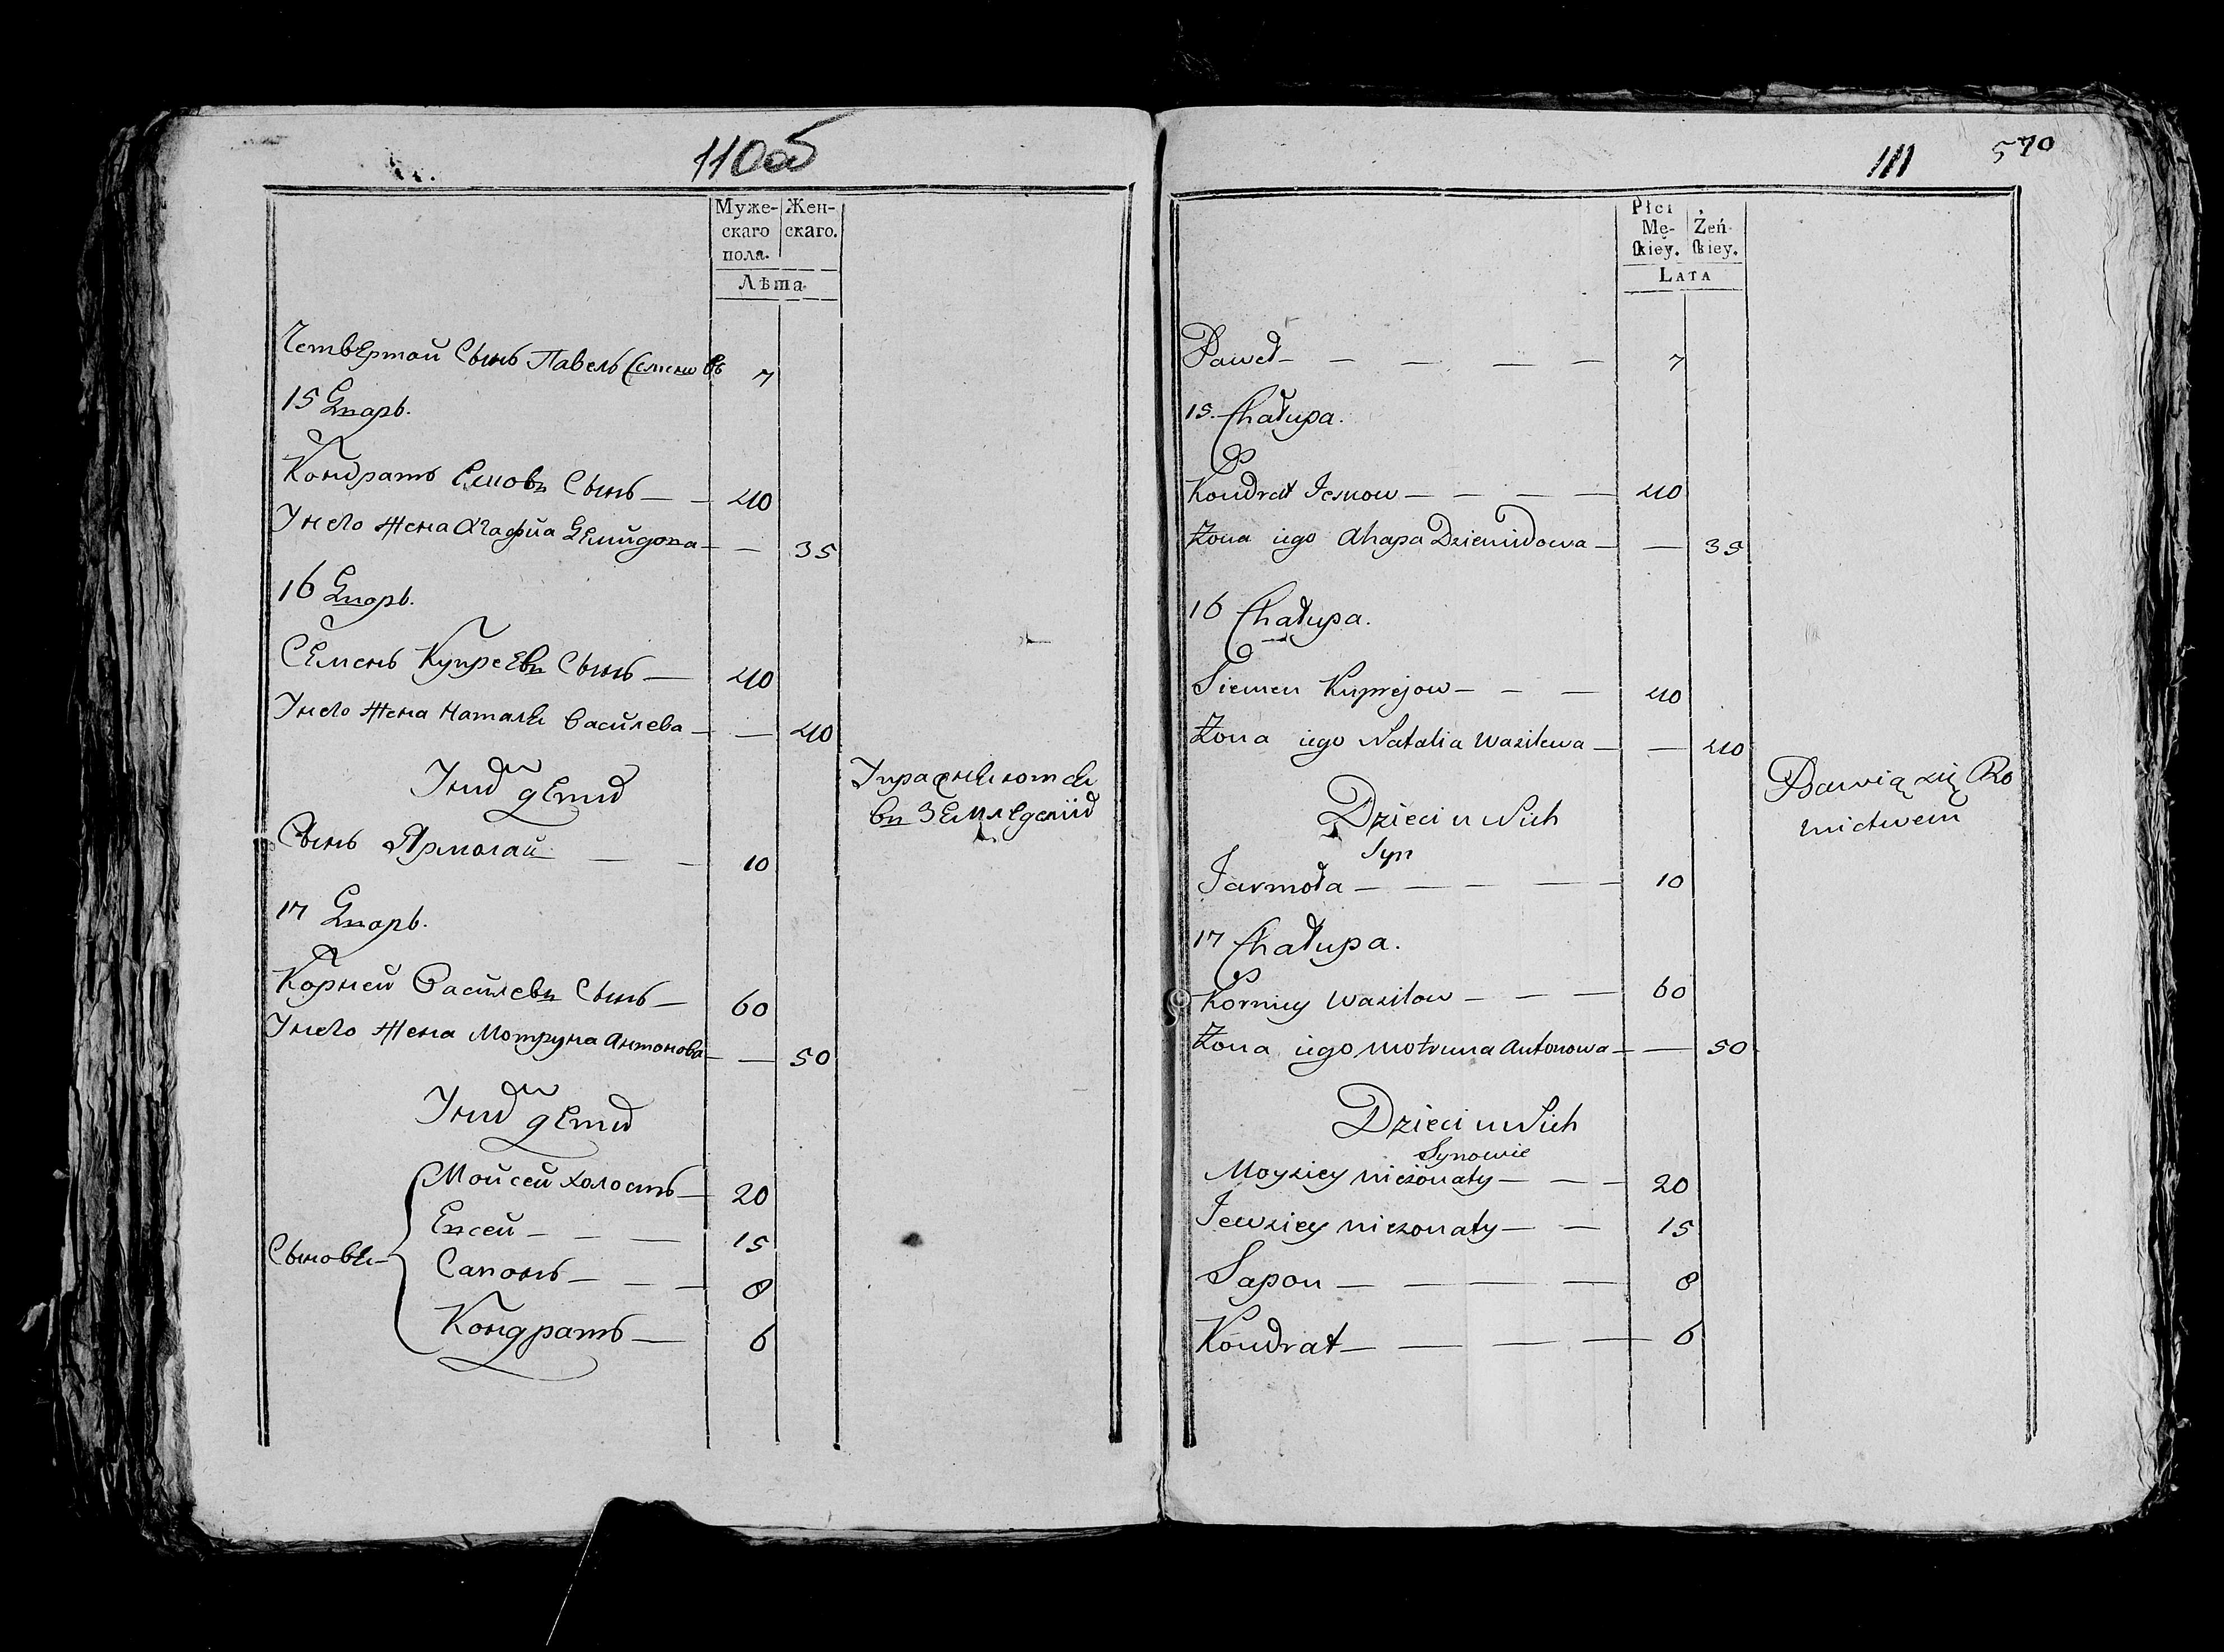 110об
Муже-
скаго
пола.
Жен-
скаго.
Лѣта.
Четвертой Сынъ Павелъ Семеновъ 7
15 Дворъ.
Кондратъ Емовъ Сынъ — — 40
Унего жена Агафиа Демидова — — 35
16 Дворъ.
Семенъ Купреевъ Сынъ — 40
Унего жена Наталя Василева — — 40
Унид дети
Упражняются
въ Земледелиї
Сынъ Ярмолай — — 10
17 Дворъ.
Корней Василевъ Сынъ — 60
Унего жена Мотруна Антонова — — 50
Унид дети
Сыновя
Мойсей холостъ — 20
Евсей — — — 15
Сапонъ — — — 8
Кондратъ — 6
111 570
Płci
Mę-
skiey.
Żeń-
skiey.
LATA
Paweł — — — — — 7
15. Chałupa.
Kondrat Jemow — — — — 40
Żona iego Ahapa Dziemidowa — — 35
16 Chałupa.
Siemen Kuprejow — — — 40
Żona iego Natalia Wasilewa — — 40
Dzieci u Nich
Bawią się Ro
lnictwem
Syn
Jarmoła — — — — — 10
17 Chałupa.
Korniey Wasilow — — — 60
Żona iego Motruna Antonowa — — 50
Dzieci u Nich
Synowie
Moysiey nieżonaty — — — 20
Jewsiey nieżonaty — — 15
Sapon — — — — 8
Kondrat — — — — 6